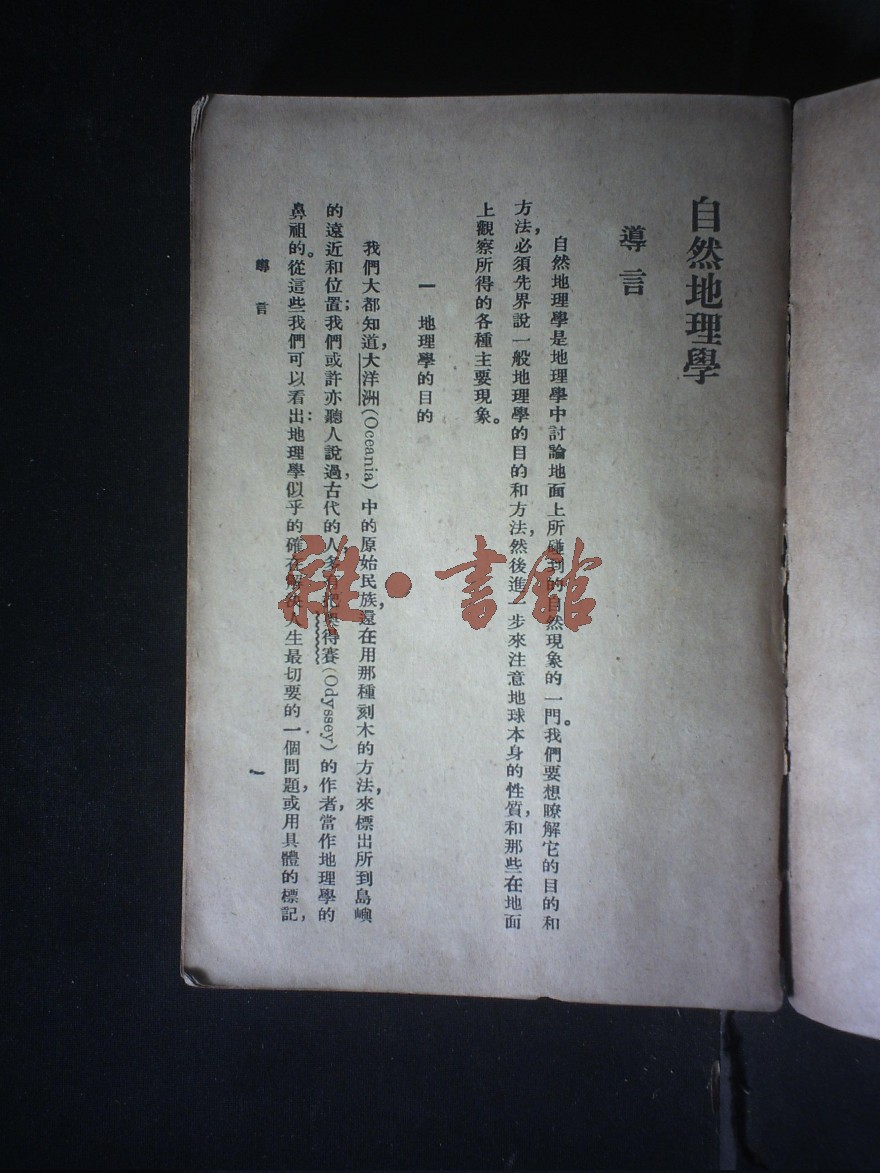 自然地理學
導言
自然地理學是地理學中討論地面上所碰到的自然現象的一門。我們要想瞭解它的目的和
方法，必須先界說一般地理學的目的和方法，然後進一步來注意地球本身的性質，和那些在地面
上觀察所得的各種主要現象。
一 地理學的目的
我們大都知道，大洋洲(Oceania)中的原始民族，還在用那種刻木的方法，來標出所到島嶼
的遠近和位置；我們或許亦聽人說過，古代的人，多有把奧得賽(Odyssey)的作者，當作地理學的
鼻祖的。從這些我們可以看出：地理學似乎的確在解決人生最切要的一個問題，或用具體的標記，
導言
一
雜·書館